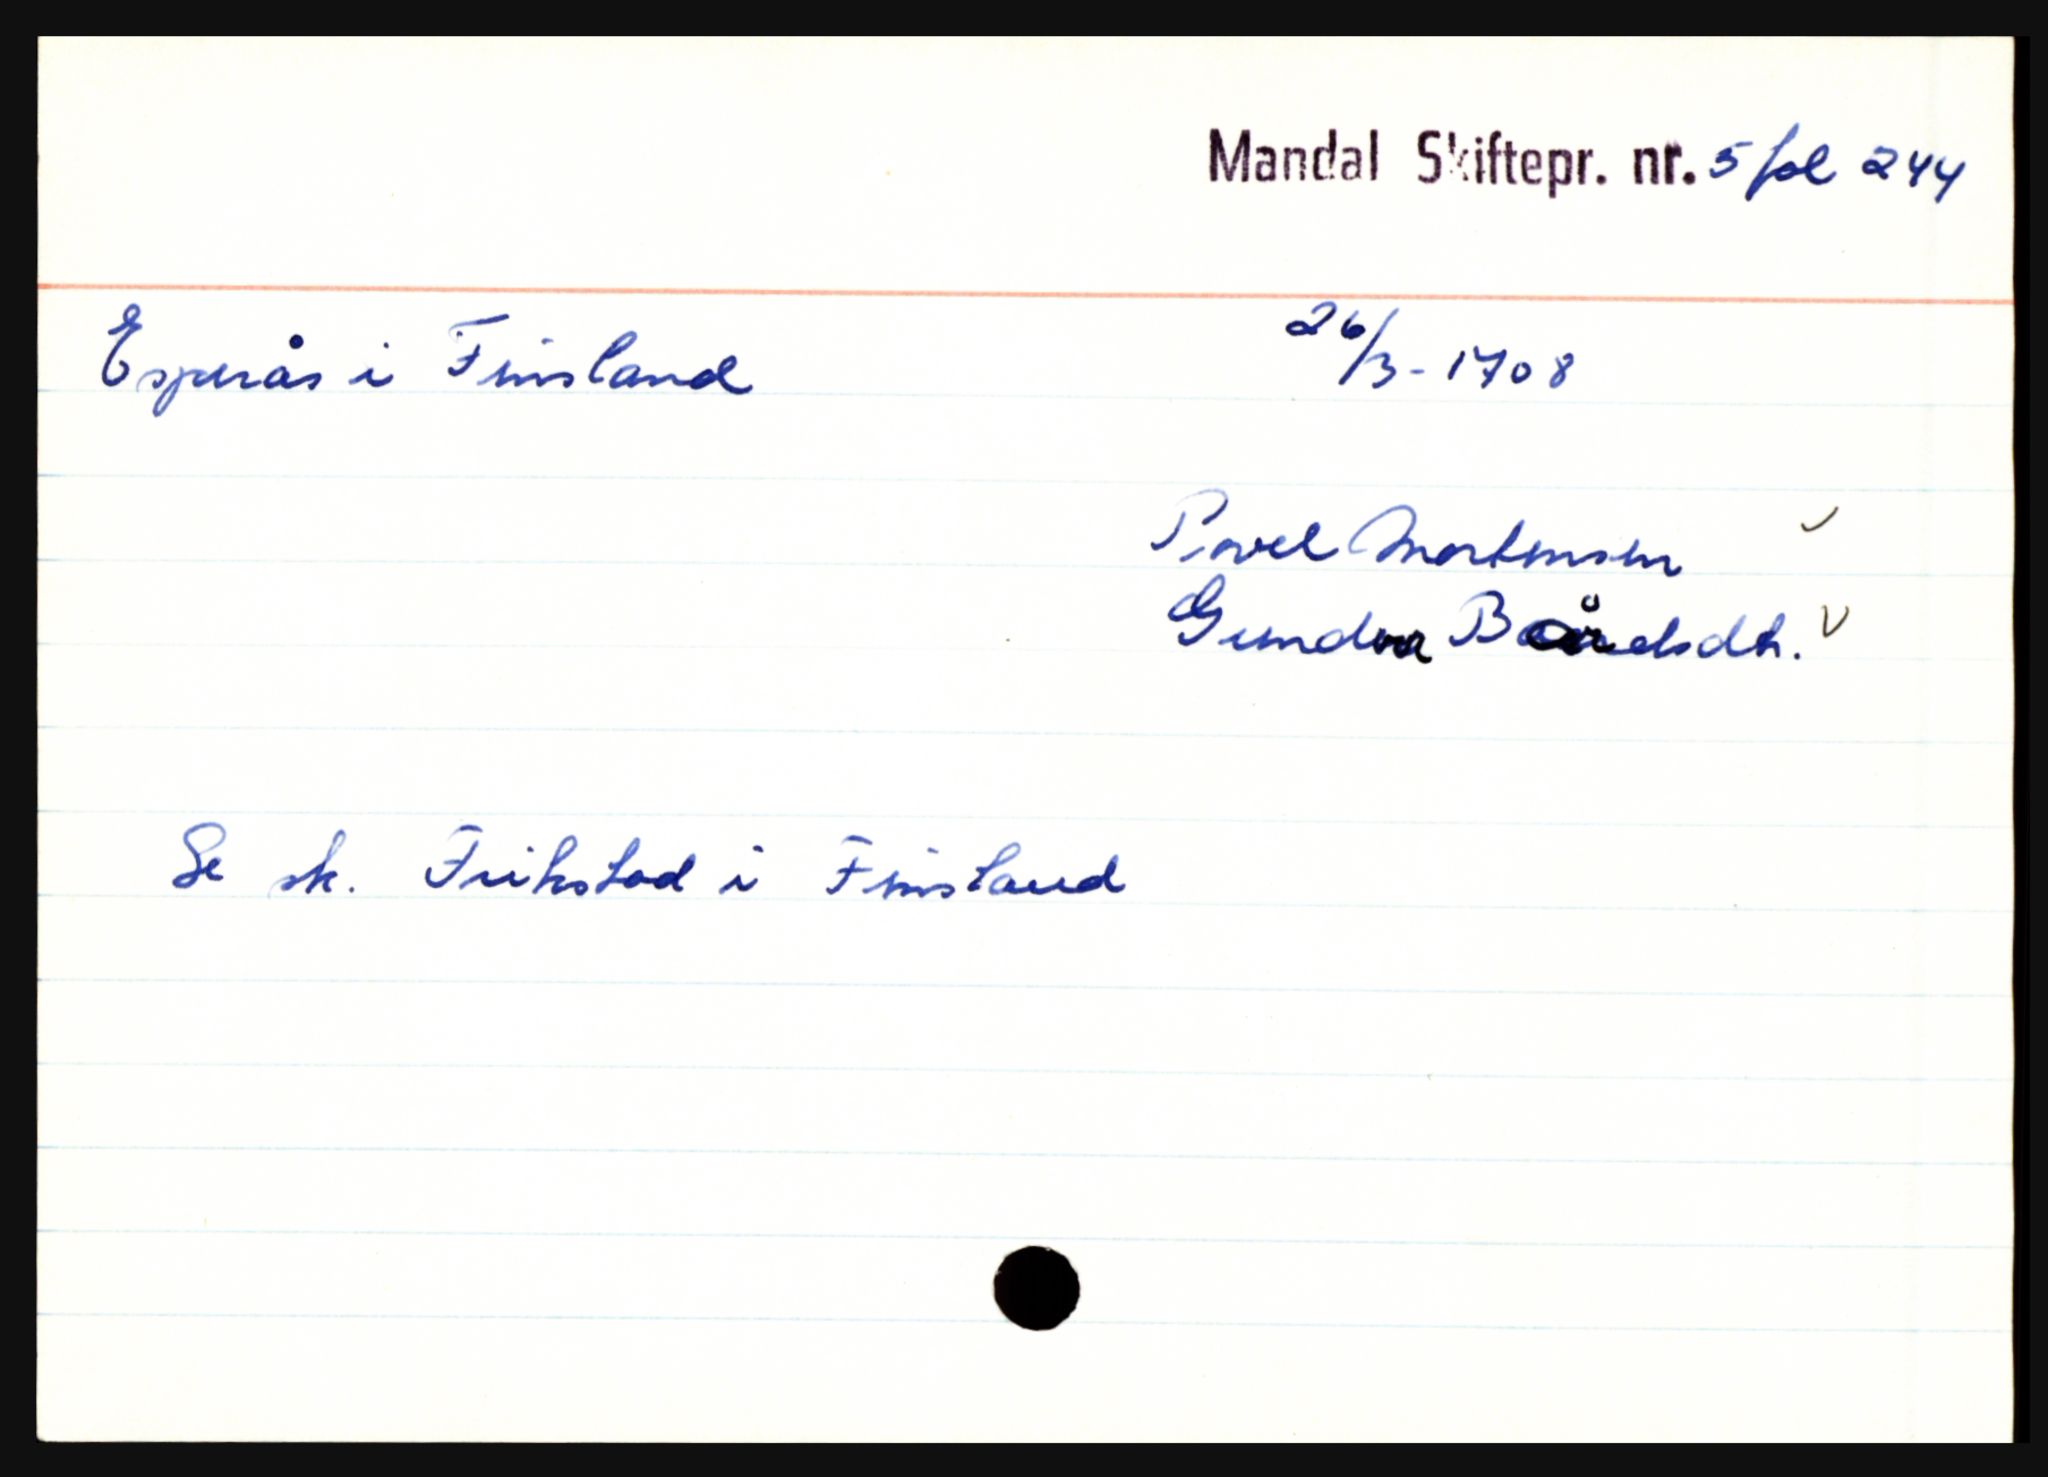 Mandal Skiftepr. nr. 5 fol 244
Esperås i Finsland 26/3-1708
Povel Mortensen ✓
Gundva Bårdsdtr. V
Se sk. Frikstad i Finsland